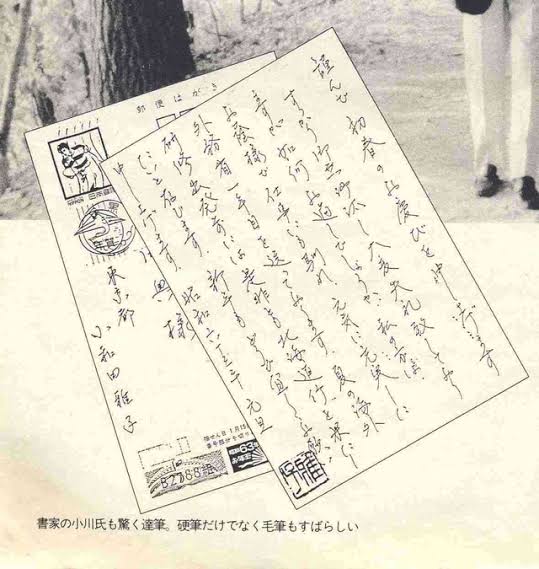 郵便はがき
謹んで初春のお慶びを申し上げます
すっかり御無沙汰し大変失礼致しており
ますが如何お過しでしょうか。私の方は、
お蔭様で仕事にも馴れ、元気に充実した
外務省一年目を送っております。夏の海外
研修出発前には是非とも北海道行を果し
たいと存じます。新年もどうぞ宜しくお願い
申し上げます。
昭和六十三年 元旦
様
東京都
小和田雅子
年賀
雅子
昭和63年
お年玉
書家の小川氏も驚く達筆。硬筆だけでなく毛筆もすばらしい